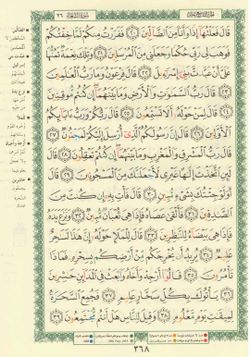 قَالَ فَعَلْتُهَا إِذًا وَأَنَا مِنَ الضَّالِّينَ ﴿٢٠﴾ فَفَرَرْتُ مِنكُمْ لَمَّا خِفْتُكُمْ
فَوَهَبَ لِي رَبِّي حُكْمًا وَجَعَلَنِي مِنَ الْمُرْسَلِينَ ﴿٢١﴾ وَتِلْكَ نِعْمَةٌ تَمُنُّهَا
عَلَيَّ أَنْ عَبَّدتَّ بَنِي إِسْرَائِيلَ ﴿٢٢﴾ قَالَ فِرْعَوْنُ وَمَا رَبُّ الْعَالَمِينَ ﴿٢٣﴾
قَالَ رَبُّ السَّمَاوَاتِ وَالْأَرْضِ وَمَا بَيْنَهُمَا إِن كُنتُم مُّوقِنِينَ ﴿٢٤﴾
قَالَ لِمَنْ حَوْلَهُ أَلَا تَسْتَمِعُونَ ﴿٢٥﴾ قَالَ رَبُّكُمْ وَرَبُّ آبَائِكُمُ
الْأَوَّلِينَ ﴿٢٦﴾ قَالَ إِنَّ رَسُولَكُمُ الَّذِي أُرْسِلَ إِلَيْكُمْ لَمَجْنُونٌ ﴿٢٧﴾
قَالَ رَبُّ الْمَشْرِقِ وَالْمَغْرِبِ وَمَا بَيْنَهُمَا إِن كُنتُمْ تَعْقِلُونَ ﴿٢٨﴾
قَالَ لَئِنِ اتَّخَذْتَ إِلَٰهًا غَيْرِي لَأَجْعَلَنَّكَ مِنَ الْمَسْجُونِينَ ﴿٢٩﴾ قَالَ
أَوَلَوْ جِئْتُكَ بِشَيْءٍ مُّبِينٍ ﴿٣٠﴾ قَالَ فَأْتِ بِهِ إِن كُنتَ مِنَ
الصَّادِقِينَ ﴿٣١﴾ فَأَلْقَىٰ عَصَاهُ فَإِذَا هِيَ ثُعْبَانٌ مُّبِينٌ ﴿٣٢﴾ وَنَزَعَ يَدَهُ
فَإِذَا هِيَ بَيْضَاءُ لِلنَّاظِرِينَ ﴿٣٣﴾ قَالَ لِلْمَلَإِ حَوْلَهُ إِنَّ هَٰذَا لَسَاحِرٌ
عَلِيمٌ ﴿٣٤﴾ يُرِيدُ أَن يُخْرِجَكُم مِّنْ أَرْضِكُم بِسِحْرِهِ فَمَاذَا
تَأْمُرُونَ ﴿٣٥﴾ قَالُوا أَرْجِهْ وَأَخَاهُ وَابْعَثْ فِي الْمَدَائِنِ حَاشِرِينَ ﴿٣٦﴾
يَأْتُوكَ بِكُلِّ سَحَّارٍ عَلِيمٍ ﴿٣٧﴾ فَجُمِعَ السَّحَرَةُ
لِمِيقَاتِ يَوْمٍ مَّعْلُومٍ ﴿٣٨﴾ وَقِيلَ لِلنَّاسِ هَلْ أَنتُم مُّجْتَمِعُونَ ﴿٣٩﴾
٣٦٨